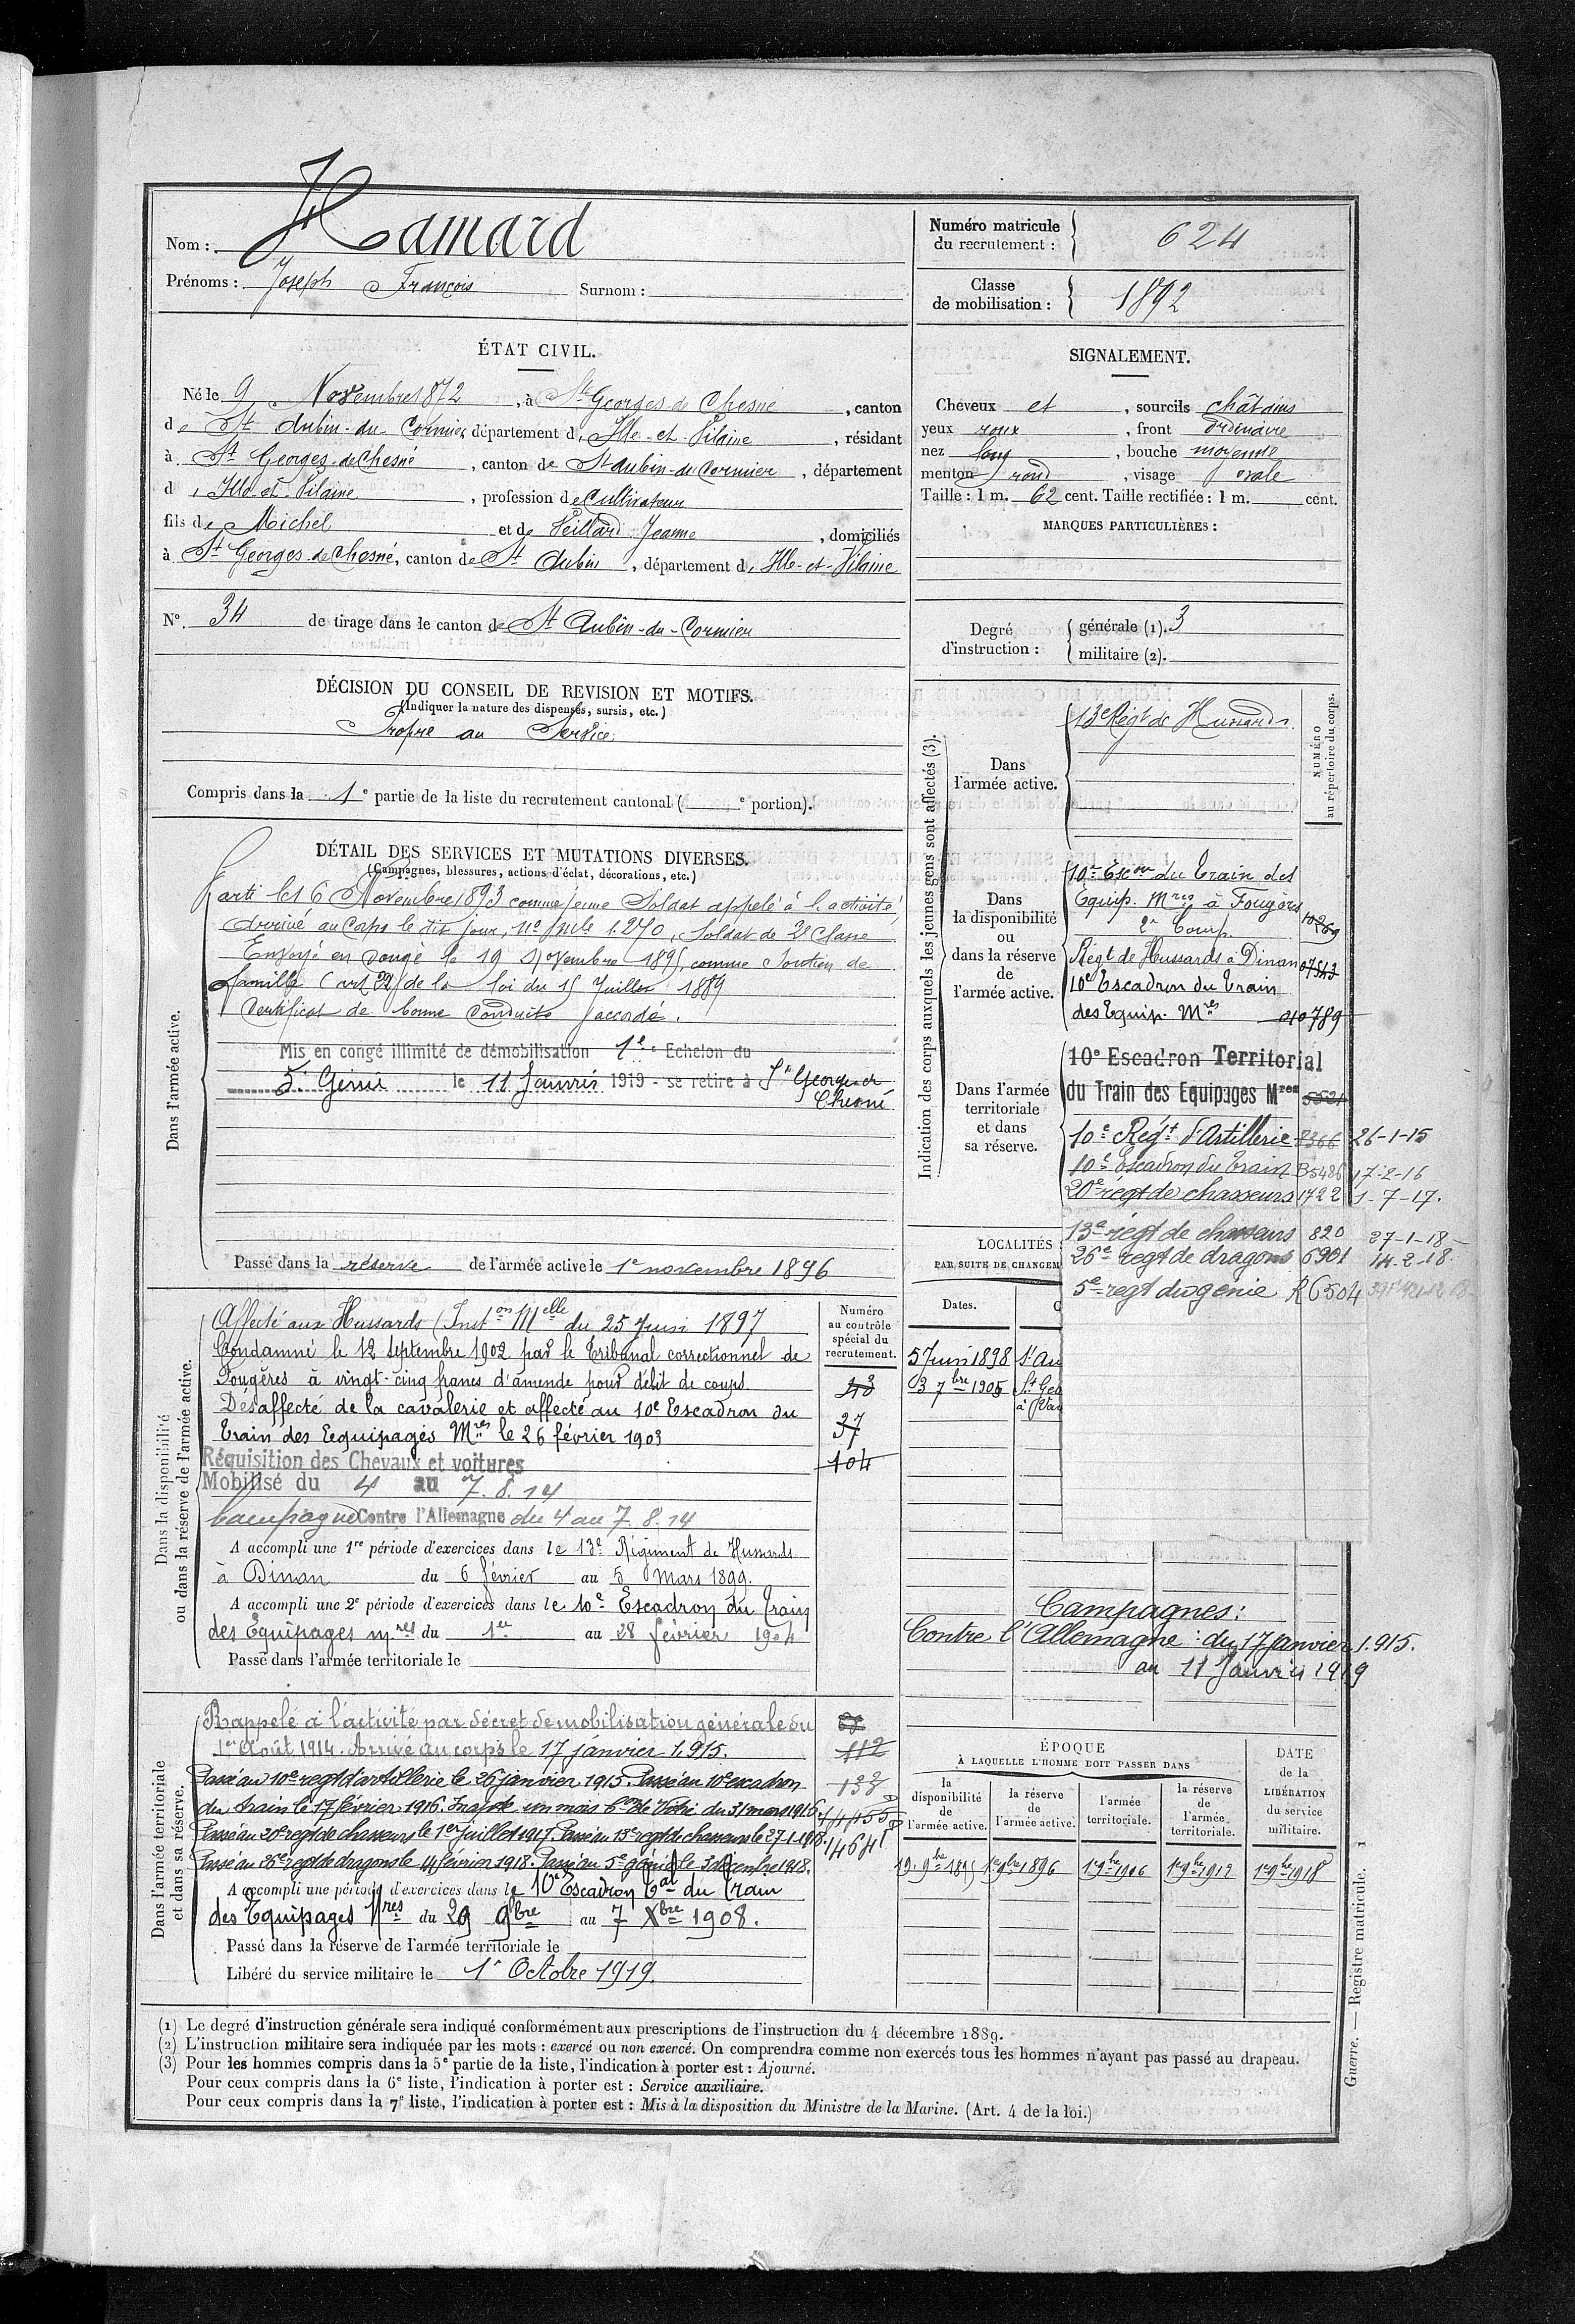 Nom : Hamard
Prénoms : Joseph François Surnom :
Numéro matricule du recrutement : 624
Classe de mobilisation : 1892
ÉTAT CIVIL.
Né le 9 Novembre 1872, à St Georges de Chesné, canton
de St Aubin-du-Cormier département d'Ille-et-Vilaine, résidant
à St Georges-de Chesné, canton de St aubin-du Cormier, département
d'Ille et Vilaine, profession de Cultivateur
fils de Michel et de Veillard Jeanne, domiciliés
à St Georges de Chesné, canton de St Aubin, département d'Ille-et-Vilaine
SIGNALEMENT.
Cheveux et, sourcils châtains
yeux roux, front ordinaire
nez long, bouche moyenne
menton rond, visage ovale
Taille : 1 m. 62 cent. Taille rectifiée : 1 m. cent.
MARQUES PARTICULIÈRES :
No. 34 de tirage dans le canton de St Aubin-du-Cormier
Degré d'instruction :
générale (1). 3
militaire (2).
DÉCISION DU CONSEIL DE REVISION ET MOTIFS.
(Indiquer la nature des dispenses, sursis, etc.)
Propre au Service.
Compris dans la 1e partie de la liste du recrutement cantonal ( e portion).
DÉTAIL DES SERVICES ET MUTATIONS DIVERSES.
(Campagnes, blessures, actions d'éclat, décorations, etc.)
Dans l'armée active.
Parti le 16 Novembre 1893 comme jeune Soldat appelé à l'activité,
Arrivé au Corps le dit jour, no mle 1270, Soldat de 2e Classe
Envoyé en congé le 19 Novembre 1895, comme Soutien de
famille (art 22) de la loi du 15 Juillet 1889
Certificat de bonne Conduite accordé.
Mis en congé illimité de démobilisation 1er Echelon du
5e Génie le 11 Janvier 1919 - se retire à St Georges de
Chesné
Passé dans la réserve de l'armée active le 1e novembre 1896
Indication des corps auxquels les jeunes gens sont affectés (3).
NUMÉRO au répertoire du corps.
Dans l'armée active.
13e Régt de Hussards
Dans la disponibilité ou dans la réserve de l'armée active.
10e Escon du Train des
Equip. Mres à Fougères
2e Comp. 10269
Régt de Hussards à Dinan 07543
10e Escadron du Train
des Equip. Mres 010789
Dans l'armée territoriale et dans sa réserve.
10e Escadron Territorial
du Train des Equipages Mres
10e Régt d'Artillerie 8366 26-1-15
10e Escadron du Train B5486 17-2-16
20e régt de chasseurs 1722 1-7-17.
13e régt de chasseurs 820 27-1-18
26e régt de dragons 6901 14-2-18
5e régt du génie R6504
LOCALITÉS
PAR SUITE DE CHANGEM
Dates.
5 Juin 1898 St Au
3 7bre 1905 St Geo
Dans la disponibilité ou dans la réserve de l'armée active.
Numéro au contrôle spécial du recrutement.
Affecté aux Hussards (Inston Mlle du 25 Juin 1897
Condamné le 12 Septembre 1902 par le Tribunal correctionnel de
Fougères à vingt-cinq francs d'amende pour délit de coups.
Désaffecté de la cavalerie et affecté au 10e Escadron du
Train des Equipages Mres le 26 février 1903
37
104
Réquisition des Chevaux et voitures
Mobilisé du 4 au 7.8.14
Campagne Contre l'Allemagne du 4 au 7.8.14
A accompli une 1re période d'exercices dans le 13e Régiment de Hussards
à Dinan du 6 février au 5 Mars 1899.
A accompli une 2e période d'exercices dans le 10e Escadron du Train
des Equipages mres du 1er au 28 février 1904
Passé dans l'armée territoriale le
Campagnes :
Contre l'Allemagne : du 17 janvier 1915.
au 11 Janvier 1919
Dans l'armée territoriale et dans sa réserve.
Rappelé à l'activité par décret de mobilisation générale du
1er Août 1914. Arrivé au corps le 17 janvier 1.915.
Passé au 10e régt d'artillerie le 26 janvier 1915. Passé au 10e escadron
du train le 17 février 1916. du 31 mars 1916.
Passé au 20e régt de chasseurs le 1er juillet 1917. Passé au 13e regt de chasseurs le 27-1-1918.
Passé au 26e régt de dragons le 14 février 1918. Passé au 5e génie le 3 décembre 1918.
112
A accompli une période d'exercices dans le 10e Escadron Tal du Train
des Equipages Mres du 29 9bre au 7 Xbre 1908.
Passé dans la réserve de l'armée territoriale le
Libéré du service militaire le 1er Octobre 1919
ÉPOQUE
À LAQUELLE L'HOMME DOIT PASSER DANS
la disponibilité de l'armée active.
la réserve de l'armée active.
l'armée territoriale.
la réserve de l'armée territoriale.
DATE de la LIBÉRATION du service militaire.
19.9bre 1895 1e 9bre 1896 1e 9bre 1906 1e 9bre 1912 1e 9bre 1918
(1) Le degré d'instruction générale sera indiqué conformément aux prescriptions de l'instruction du 4 décembre 1889.
(2) L'instruction militaire sera indiquée par les mots : exercé ou non exercé. On comprendra comme non exercés tous les hommes n'ayant pas passé au drapeau.
(3) Pour les hommes compris dans la 5e partie de la liste, l'indication à porter est : Ajourné.
Pour ceux compris dans la 6e liste, l'indication à porter est : Service auxiliaire.
Pour ceux compris dans la 7e liste, l'indication à porter est : Mis à la disposition du Ministre de la Marine. (Art. 4 de la loi.)
Guerre. — Registre matricule. 1